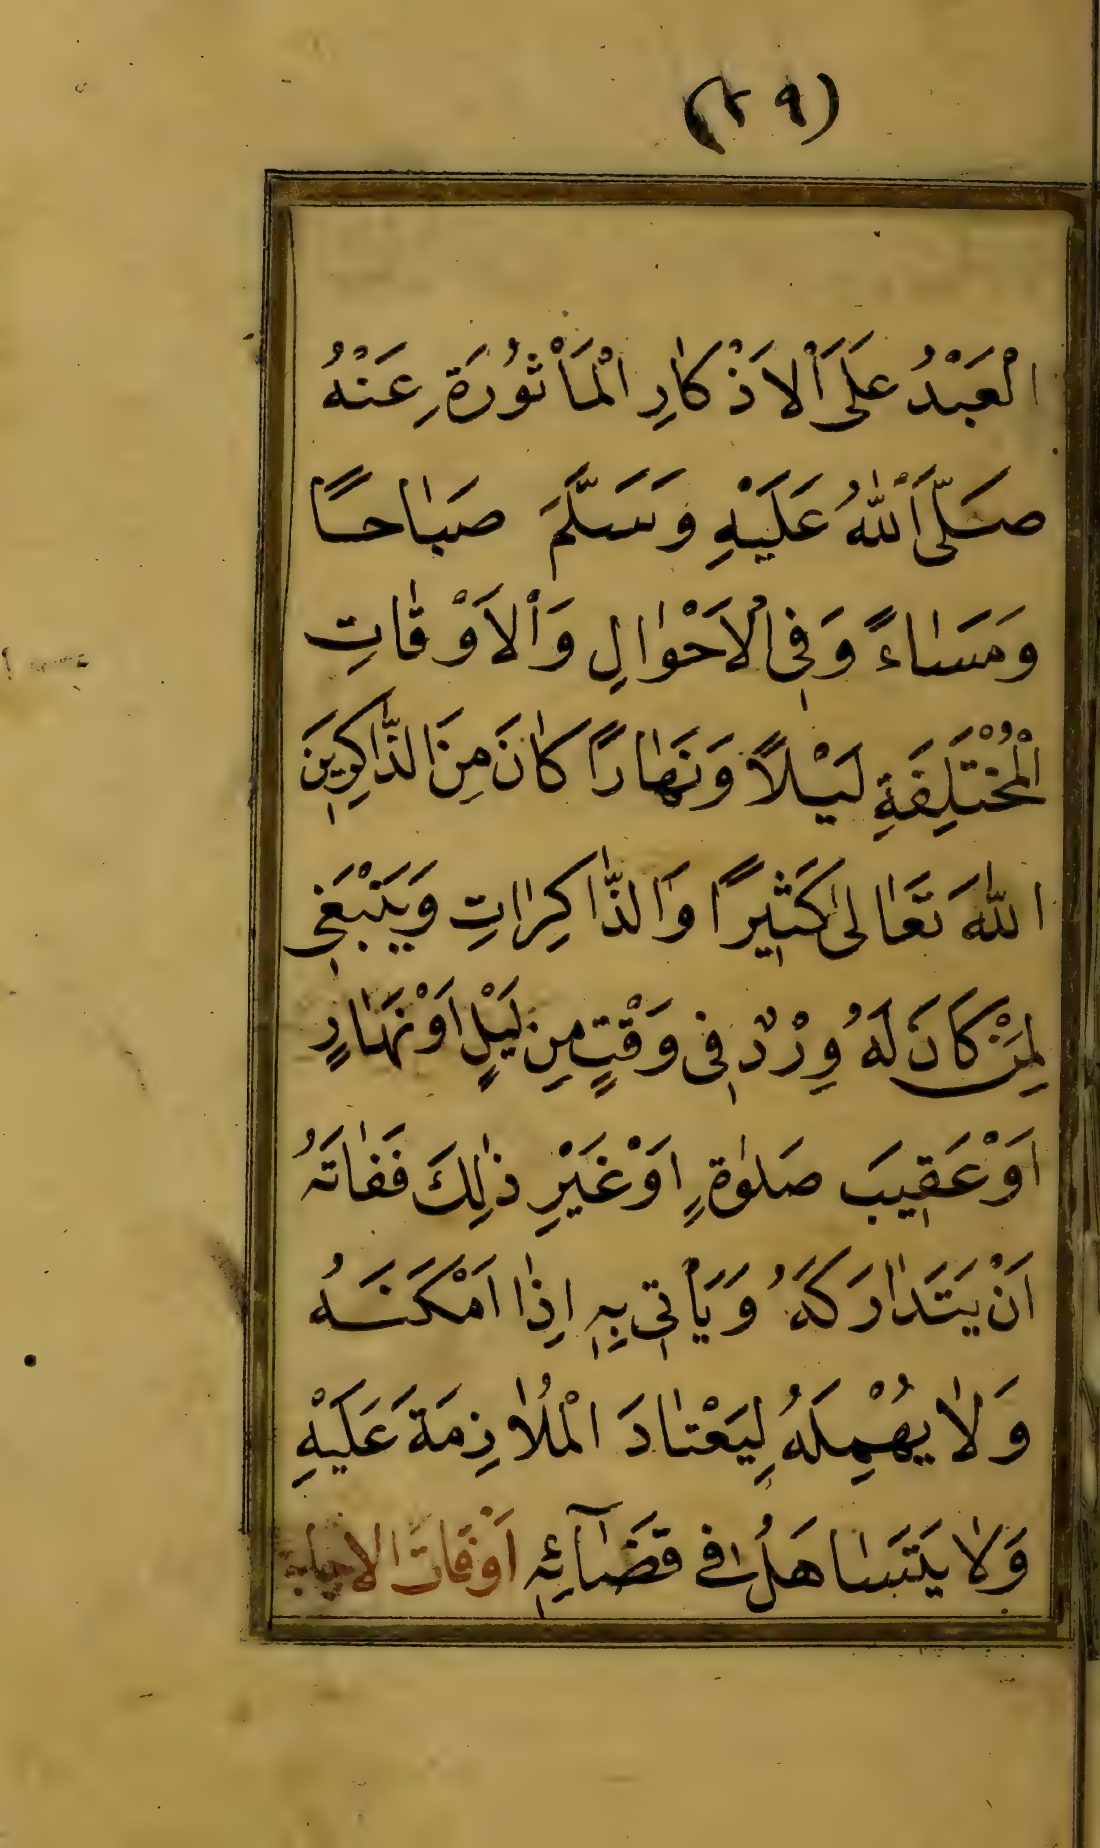 (٢٩)
الْعَبْدُ عَلَى الْاَذْكَارِ الْمَأْثُوْرَةِ عَنْهُ
صَلَّى اللّٰهُ عَلَيْهِ وَسَلَّمَ صَبَاحًا
وَمَسَاءً وَفِى الْاَحْوَالِ وَالْاَوْقَاتِ
الْمُخْتَلِفَةِ لَيْلًا وَنَهَارًا كَانَ مِنَ الذَّاكِرِيْنَ
اللّٰهَ تَعَالٰى كَثِيْرًا وَالذَّاكِرَاتِ وَيَنْبَغِى
لِمَنْ كَانَ لَهُ وِرْدٌ فِى وَقْتٍ مِنْ لَيْلٍ اَوْ نَهَارٍ
اَوْ عَقِيْبَ صَلٰوةٍ اَوْ غَيْرِ ذٰلِكَ فَفَاتَهُ
اَنْ يَتَدَارَكَهُ وَيَأْتِىَ بِهٖ اِذَا اَمْكَنَهُ
وَلَا يُهْمِلَهُ لِيَعْتَادَ الْمُلَازِمَةَ عَلَيْهِ
وَلَا يَتَسَاهَلُ فِى قَضَآئِهٖ اَوْقَاتُ الْاِجَابَةِ